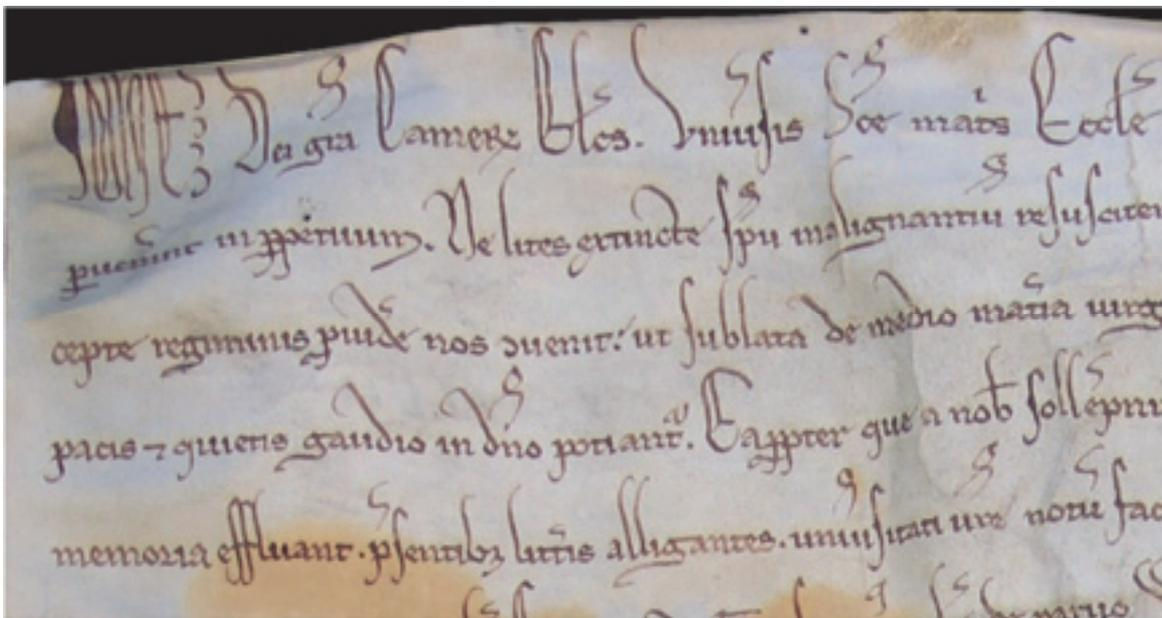 Dei gr̄a Camerꝫ Ep̄c. Vniu̾sis Sc̄e mat̾is Eccl̄e
ꝑuen̾int in ꝑpetuum. Ne lites extincte sp̄u malignantiū resusciten
cepte regiminis ꝓuidē nos ꝯuenit: ut sublata de medio mat̾ia
pacis ⁊ quietis gaudio in dn̄o potiant᷑. Eapꝓpter que a nob̄ sollēpni
memoria effluant. p̄sentibꝫ litt̾is alligantes. uniu̾sitati ur̄e notū fac